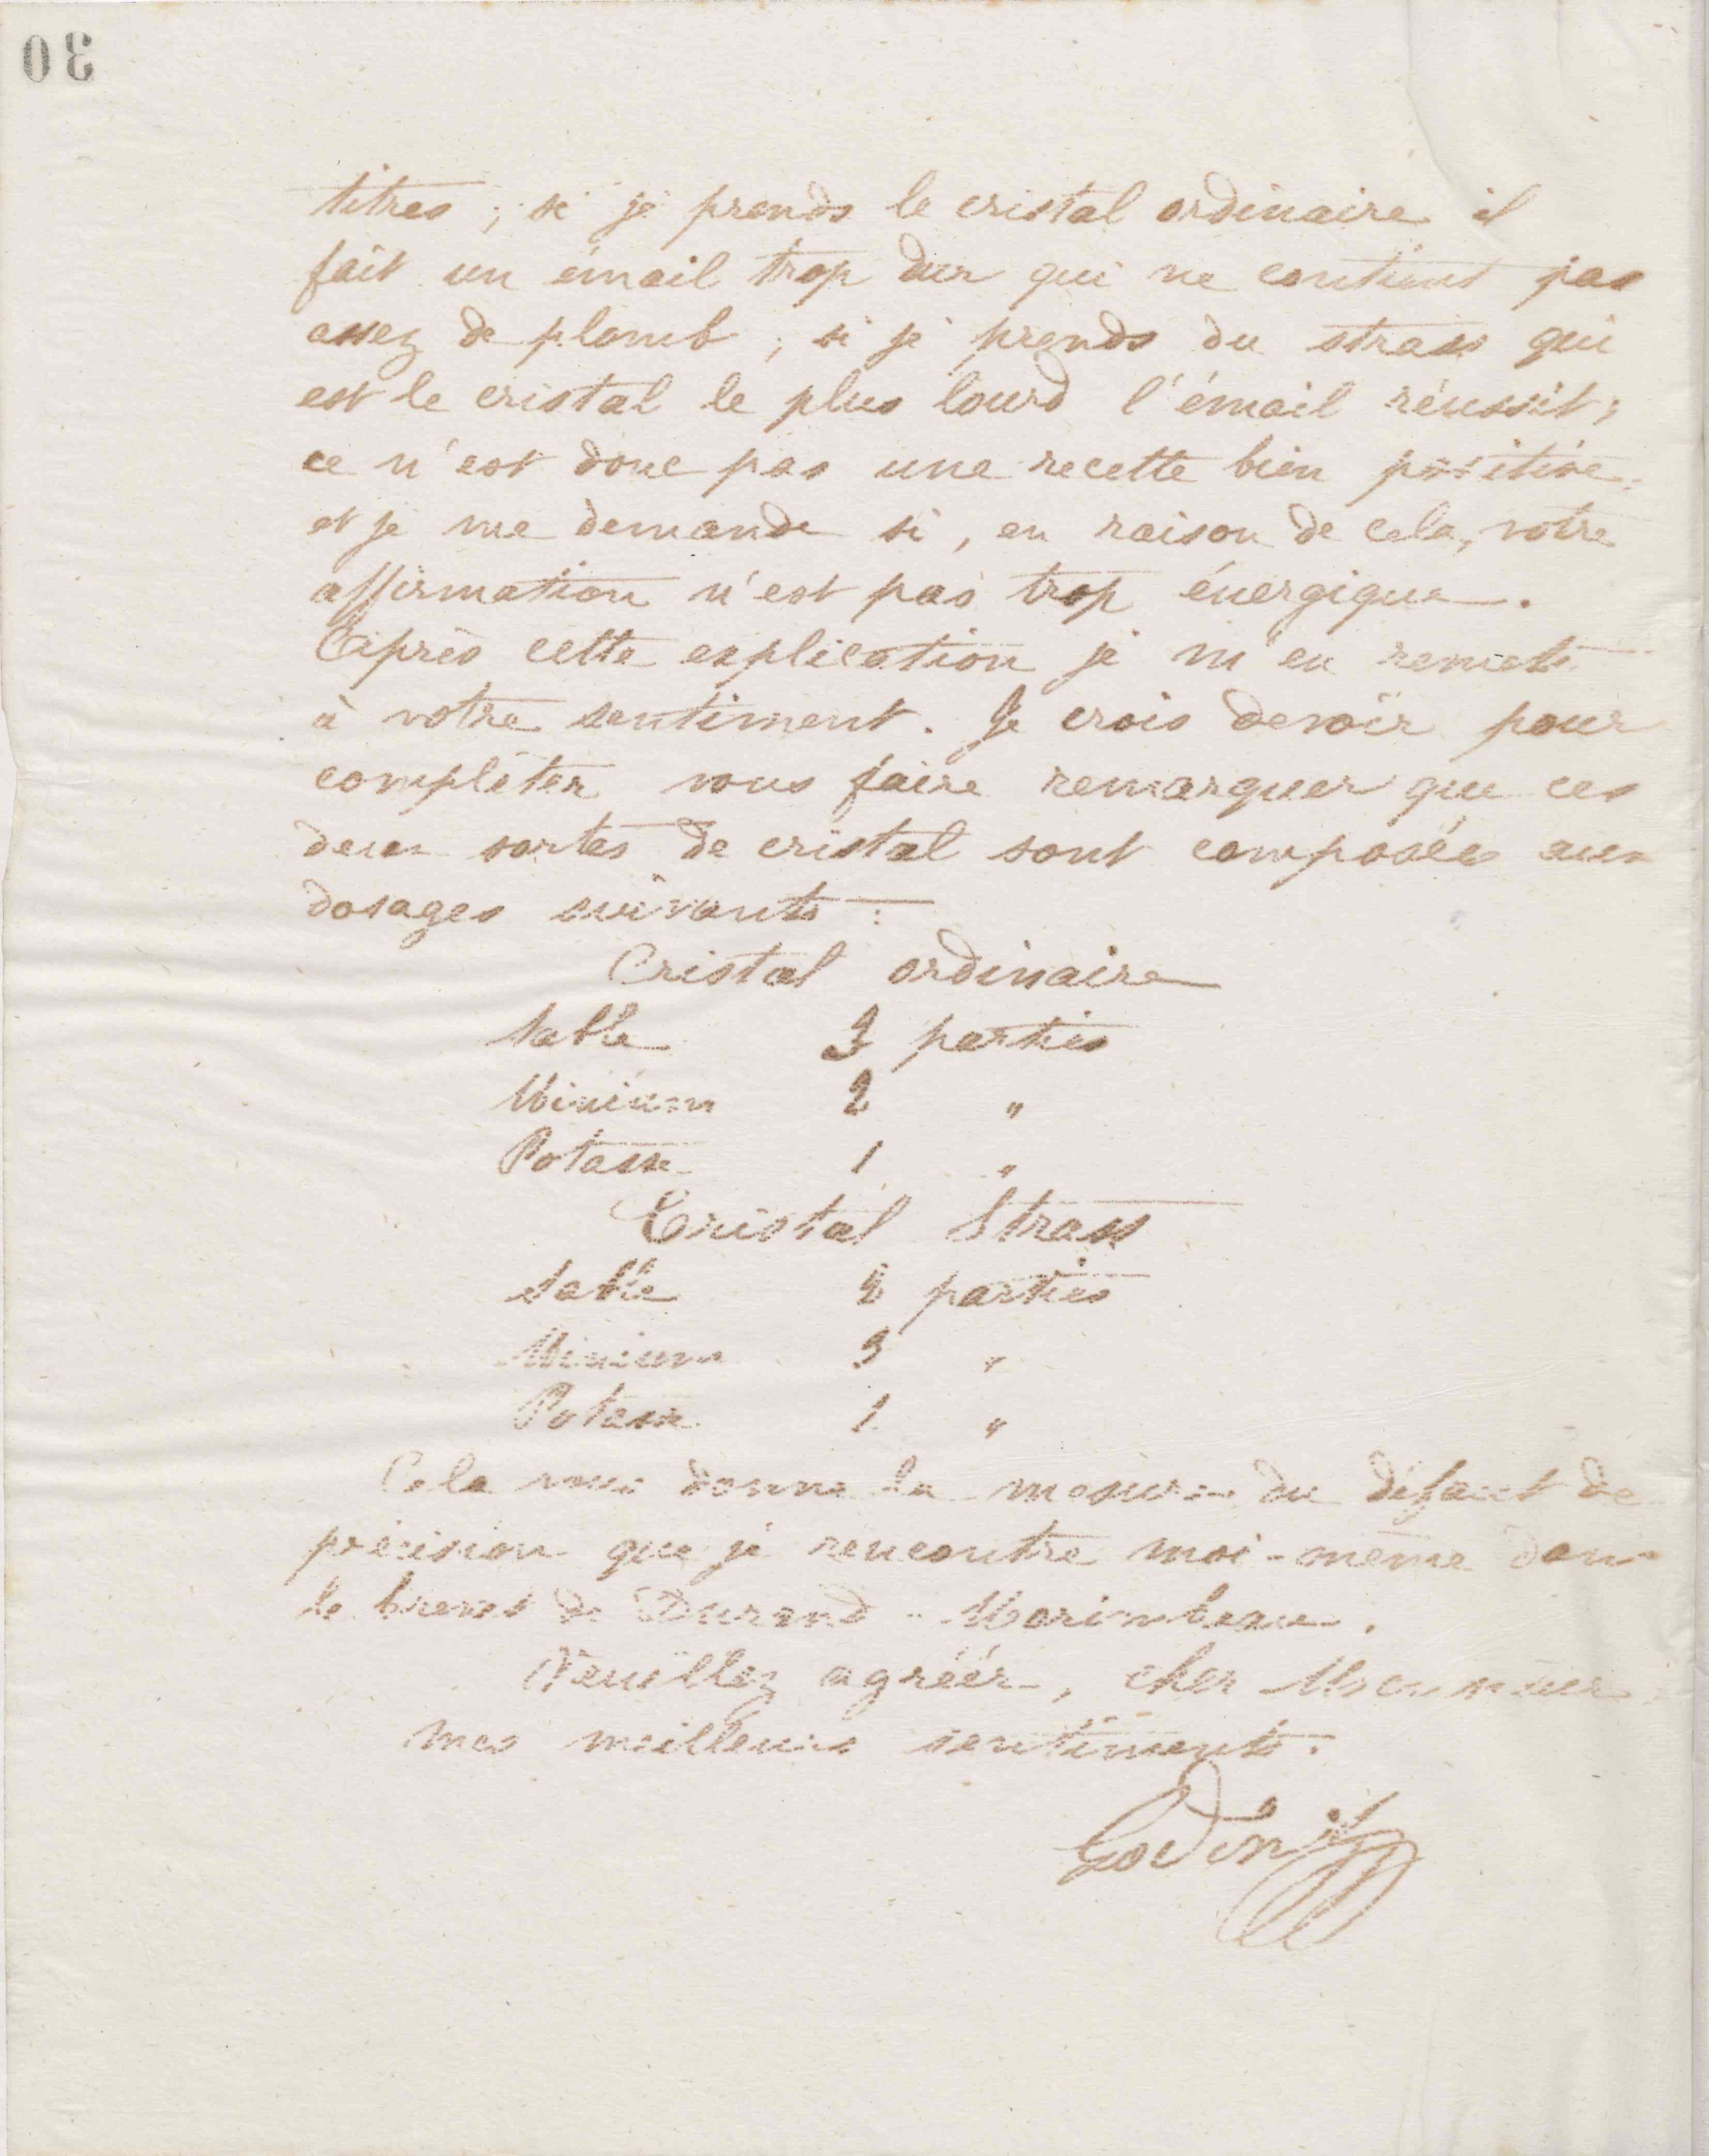 30
titres ; si je prends le cristal ordinaire il
fait un émail trop dur qui ne contient pas
assez de plomb ; si je prends du strass qui
est le cristal le plus lourd l'émail réussit ;
ce n'est donc pas une recette bien positive
et je me demande si, en raison de cela, votre
affirmation n'est pas trop énergique.
Après cette explication je m'en remets
à votre sentiment. Je crois devoir pour
compléter vous faire remarquer que ces
deux sortes de cristal sont composées aux
dosages suivants :
Cristal ordinaire
Sable 3 parties
Minium 2 "
Potasse 1 "
Cristal Strass
Sable 2 parties
Minium 3 "
Potasse 1 "
Cela vous donne la mesure du défaut de
précision que je rencontre moi-même dans
le brevet de Durand-
Veuillez agréer, cher Monsieur,
mes meilleurs sentiments.
Godin